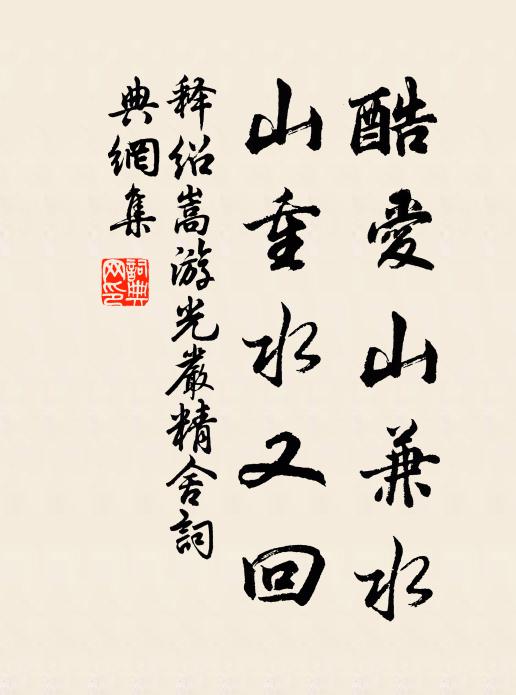 酷愛山兼水
山重水又回
释绍嵩游光嚴精舍詞
典網集
詞典
网印